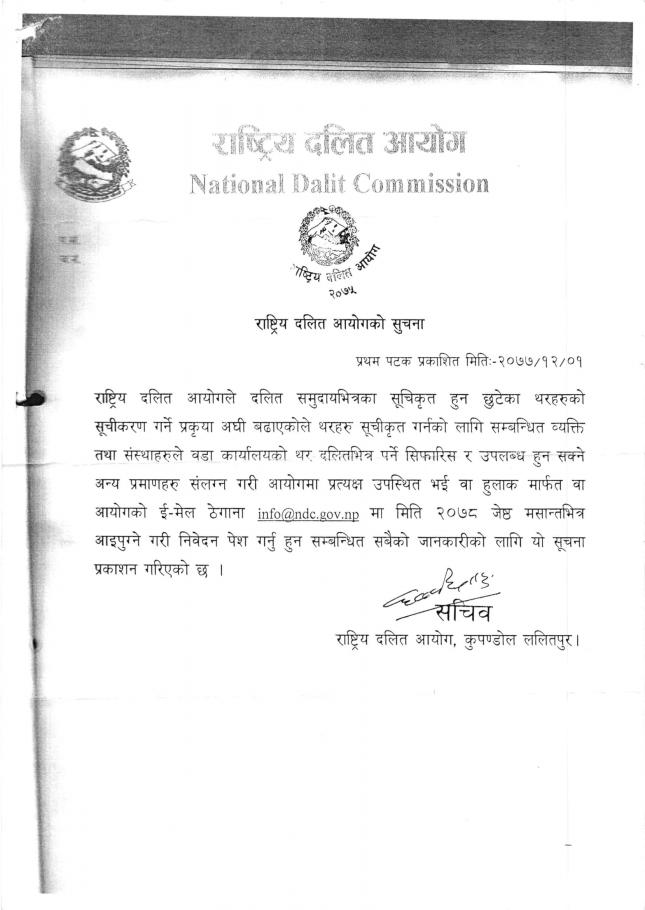 राष्ट्रिय दलित आयोग
National Dalit Commission
प.सं.
च.नं.
राष्ट्रिय दलित आयोग
२०७५
राष्ट्रिय दलित आयोगको सुचना
प्रथम पटक प्रकाशित मितिः-२०७७/१२/०१
राष्ट्रिय दलित आयोगले दलित समुदायभित्रका सूचिकृत हुन छुटेका थरहरुको
सूचीकरण गर्ने प्रकृया अघी बढाएकोले थरहरु सूचीकृत गर्नको लागि सम्बन्धित व्यक्ति
तथा संस्थाहरुले वडा कार्यालयको थर दलितभित्र पर्ने सिफारिस र उपलब्ध हुन सक्ने
अन्य प्रमाणहरु संलग्न गरी आयोगमा प्रत्यक्ष उपस्थित भई वा हुलाक मार्फत वा
आयोगको ई-मेल ठेगाना info@ndc.gov.np मा मिति २०७८ जेष्ठ मसान्तभित्र
आइपुग्ने गरी निवेदन पेश गर्नु हुन सम्बन्धित सबैको जानकारीको लागि यो सूचना
प्रकाशन गरिएको छ ।
सचिव
राष्ट्रिय दलित आयोग, कुपण्डोल ललितपुर।